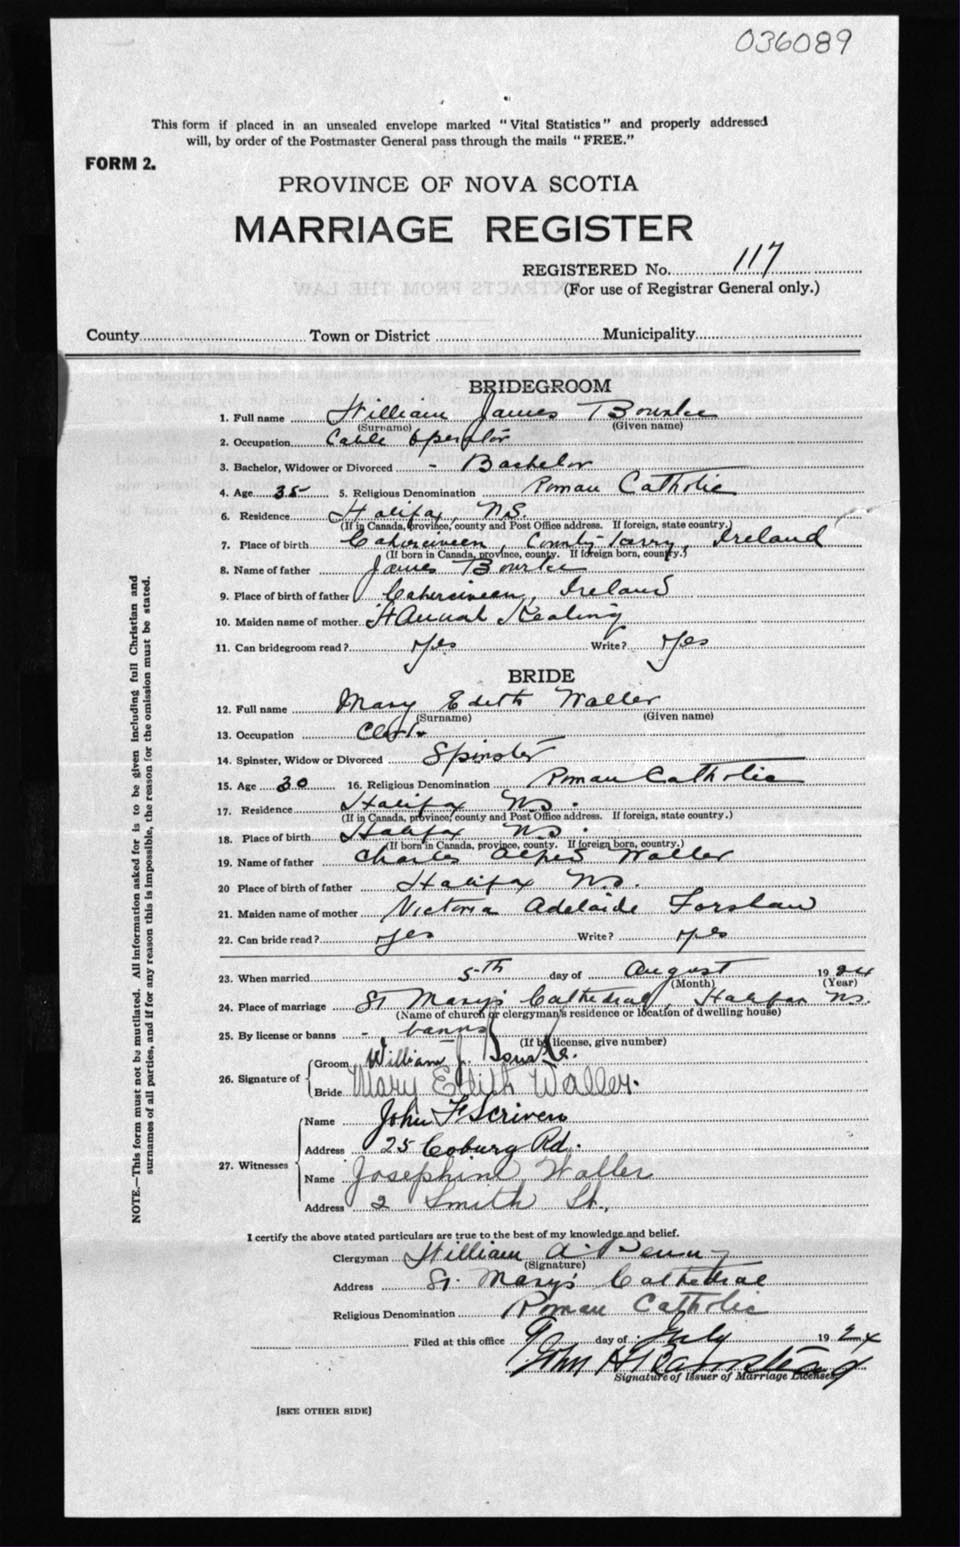 036089
This form if placed in an unsealed envelope marked "Vital Statistics" and properly addressed
will, by order of the Postmaster General pass through the mails "FREE."
FORM 2.
PROVINCE OF NOVA SCOTIA
MARRIAGE REGISTER
REGISTERED No. 117
(For use of Registrar General only.)
County Town or District Municipality
BRIDEGROOM
1. Full name William James Bourke
(Surname) (Given name)
2. Occupation Cable Operator
3. Bachelor, Widower or Divorced - Bachelor
4. Age 35 5. Religious Denomination Roman Catholic
6. Residence Halifax, N.S.
(If in Canada, province, county and Post Office address. If foreign, state country.)
7. Place of birth Caherciveen, County Kerry, Ireland
(If born in Canada, province, county. If foreign born, country.)
8. Name of father James Bourke
9. Place of birth of father Caherciveen, Ireland
10. Maiden name of mother Hannah Keating
11. Can bridegroom read? Yes Write? Yes
BRIDE
12. Full name Mary Edith Waller
(Surname) (Given name)
13. Occupation Clerk
14. Spinster, Widow or Divorced Spinster
15. Age 30 16. Religious Denomination Roman Catholic
17. Residence Halifax NS.
(If in Canada, province, county and Post Office address. If foreign, state country.)
18. Place of birth Halifax NS.
(If born in Canada, province, county. If foreign born, country.)
19. Name of father Charles Waller
20 Place of birth of father Halifax NS.
21. Maiden name of mother Victoria Adelaide Forshaw
22. Can bride read? yes Write? yes
23. When married 5th day of August 1924
(Month) (Year)
24. Place of marriage St Mary's Cathedral, Halifax NS.
(Name of church or clergyman's residence or location of dwelling house)
25. By license or banns - banns
(If by license, give number)
26. Signature of Groom William J. Bourke.
Bride Mary Edith Waller.
27. Witnesses
Name John F Scriven
Address 25 Coburg Rd.
Name Josephine Waller
Address 2 Smith St.,
I certify the above stated particulars are true to the best of my knowledge and belief.
Clergyman William A.
(Signature)
Address St. Mary's Cathedral
Religious Denomination Roman Catholic
Filed at this office 9 day of July 1924
John H Barnstead
Signature of Issuer of Marriage Licenses
[SEE OTHER SIDE]
NOTE.—This form must not be mutilated. All information asked for is to be given including full Christian and
surnames of all parties, and if for any reason this is impossible, the reason for the omission must be stated.